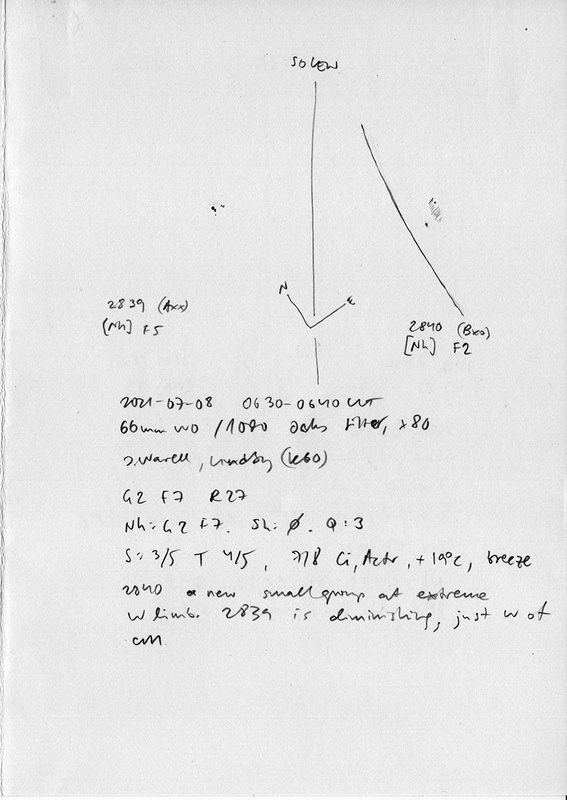 SOLEN
N
E
2839 (Axx)
[Nh] F5
2840 (Bxo)
[Nh] F2
2021-07-08 0630-0640 UT
66mm WO / filter, x80
J. Warell, Lindby (K60)
G2 F7 R27
Nh: G2 F7. Sh: Ø. Q: 3
S: 3/5 T 4/5, 7/8 Ci, +19°C, breeze
2840 a new small group at extreme
W limb. 2839 is diminishing, just W of
CM.